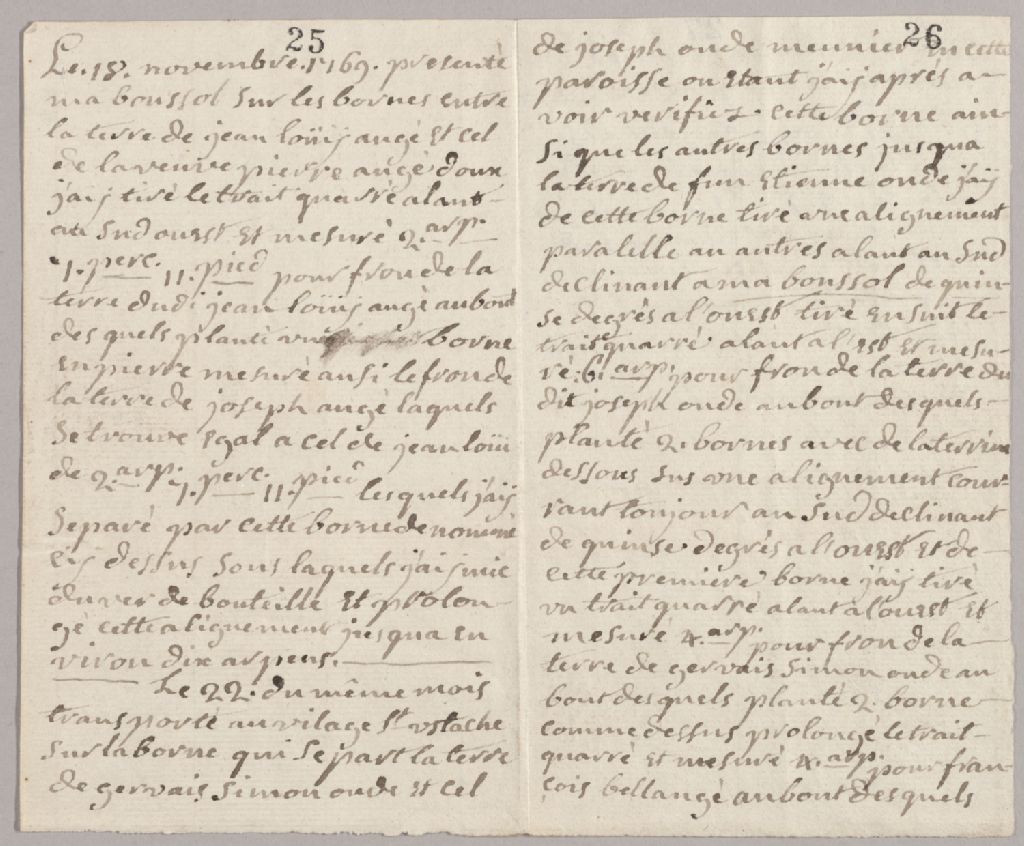 25
Le. 18. novembre. 1769. presenté
ma boussol sur les bornes entre
la terre de jean loüis angé et cel
de la veuve pierre angé d'oux
j'aij tiré le trait quarré alant
au sud ouest et mesuré 2. arp.
1. perc. 11. pied pour fron de la
terre dudi jean loüis angé au bout
des quels planté une borne
en pierre mesuré ausi le fron de
la terre de joseph angé laquels
se trouve egal a cel de jean loüi
de 2. arp. 1. perc. 11. pied lesquels j'aij
separé par cette borne denommé
cij dessus sous laquels j'aij mie
du ver de bouteille et prolon-
gé cette alignement jusqua en
viron dix arpens.
Le 22. du même mois
transporté au vilage St ustache
sur la borne qui separt la terre
de gervais simon onde et cel
26
de joseph onde meunier en cette
paroisse ou etant j'aij aprés a-
voir verifiez cette borne ain-
si que les autres bornes jusqua
la terre de fun etienne onde j'aij
de cette borne tiré une alignement
paralelle au autres alant au sud
declinant a ma boussol de quin-
se degrés a l'ouest tiré ensuit le
trait quarré alant a l'est et mesu-
ré. 6. arp. pour fron de la terre du
dit joseph onde au bout des quels
planté 2. bornes avec de la terrine
dessous sus une alignement cour-
rant toujour au sud declinant
de quinse degrés a l'ouest et de
cette premiére borne j'aij tiré
un trait quarré alant a l'ouest et
mesuré 4. arp. pour fron de la
terre de gervais simon onde au
bout des quels planté 2. borne
comme dessus prolongé le trait
quarré et mesuré 4. arp. pour fran-
çois bellangé au bout des quels